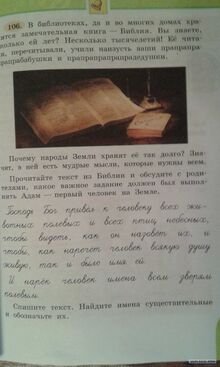 106. В библиотеках, да и во многих домах хра-
нится замечательная книга — Библия. Вы знаете,
сколько ей лет? Несколько тысячелетий! Её чита-
ли, перечитывали, учили наизусть ваши прапрапра-
прапрабабушки и прапрапрапрапрадедушки.
Почему народы Земли хранят её так долго? Зна-
чит, в ней есть мудрые мысли, которые нужны всем.
Прочитайте текст из Библии и обсудите с роди-
телями, какое важное задание должен был выпол-
нять Адам — первый человек на Земле.
Господь Бог привёл к человеку всех жи-
вотных полевых и всех птиц небесных,
чтобы видеть, как он назовёт их, и
чтобы, как наречёт человек всякую душу
живую, так и было имя ей.
И нарёк человек имена всем зверям
полевым.
Спишите текст. Найдите имена существительные
и обозначьте их.